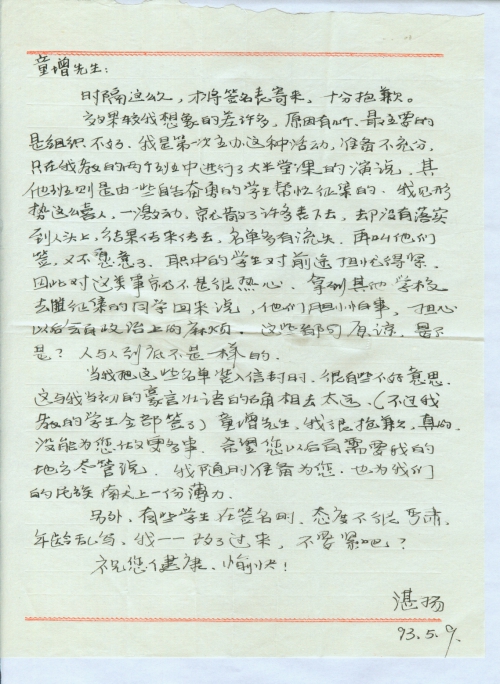 童增先生:
时隔这么久,才将签名表寄来,十分抱歉。
效果较我想象的差许多,原因有两个,最主要的
是组织不好,我是第一次主办这种活动,准备不充分,
只在我教的两个班中进行了大半堂课的演说,其
他班则是由一些自告奋勇的学生帮忙征集的。我见形
势这么喜人,一激动,就散了许多表下去,却没有落实
到人头上,结果传来传去,名单多有流失。再叫他们
签,又不愿意了。职中的学生对前途担忧得深,
因此对这类事就不是很热心。拿到其他学校
去征集的同学回来说,他们胆小怕事,担心
以后会有政治上的麻烦。这些都可原谅,是不
是?人与人到底不是一样的。
当我把这些名单装入信封时,很有些不好意思。
这与我当初的豪言壮语的口角相去太远。(不过我
教的学生全部签了)童增先生,我很抱歉,真的,
没能为您做更多事。希望您以后有需要我的
地方尽管说,我随时准备为您,也为我们
的民族献上一份薄力。
另外,有些学生在签名时,态度不很严肃,
年龄乱写,我一一改了过来,不要紧吧?
祝您健康、愉快!
湛扬
93.5.9.